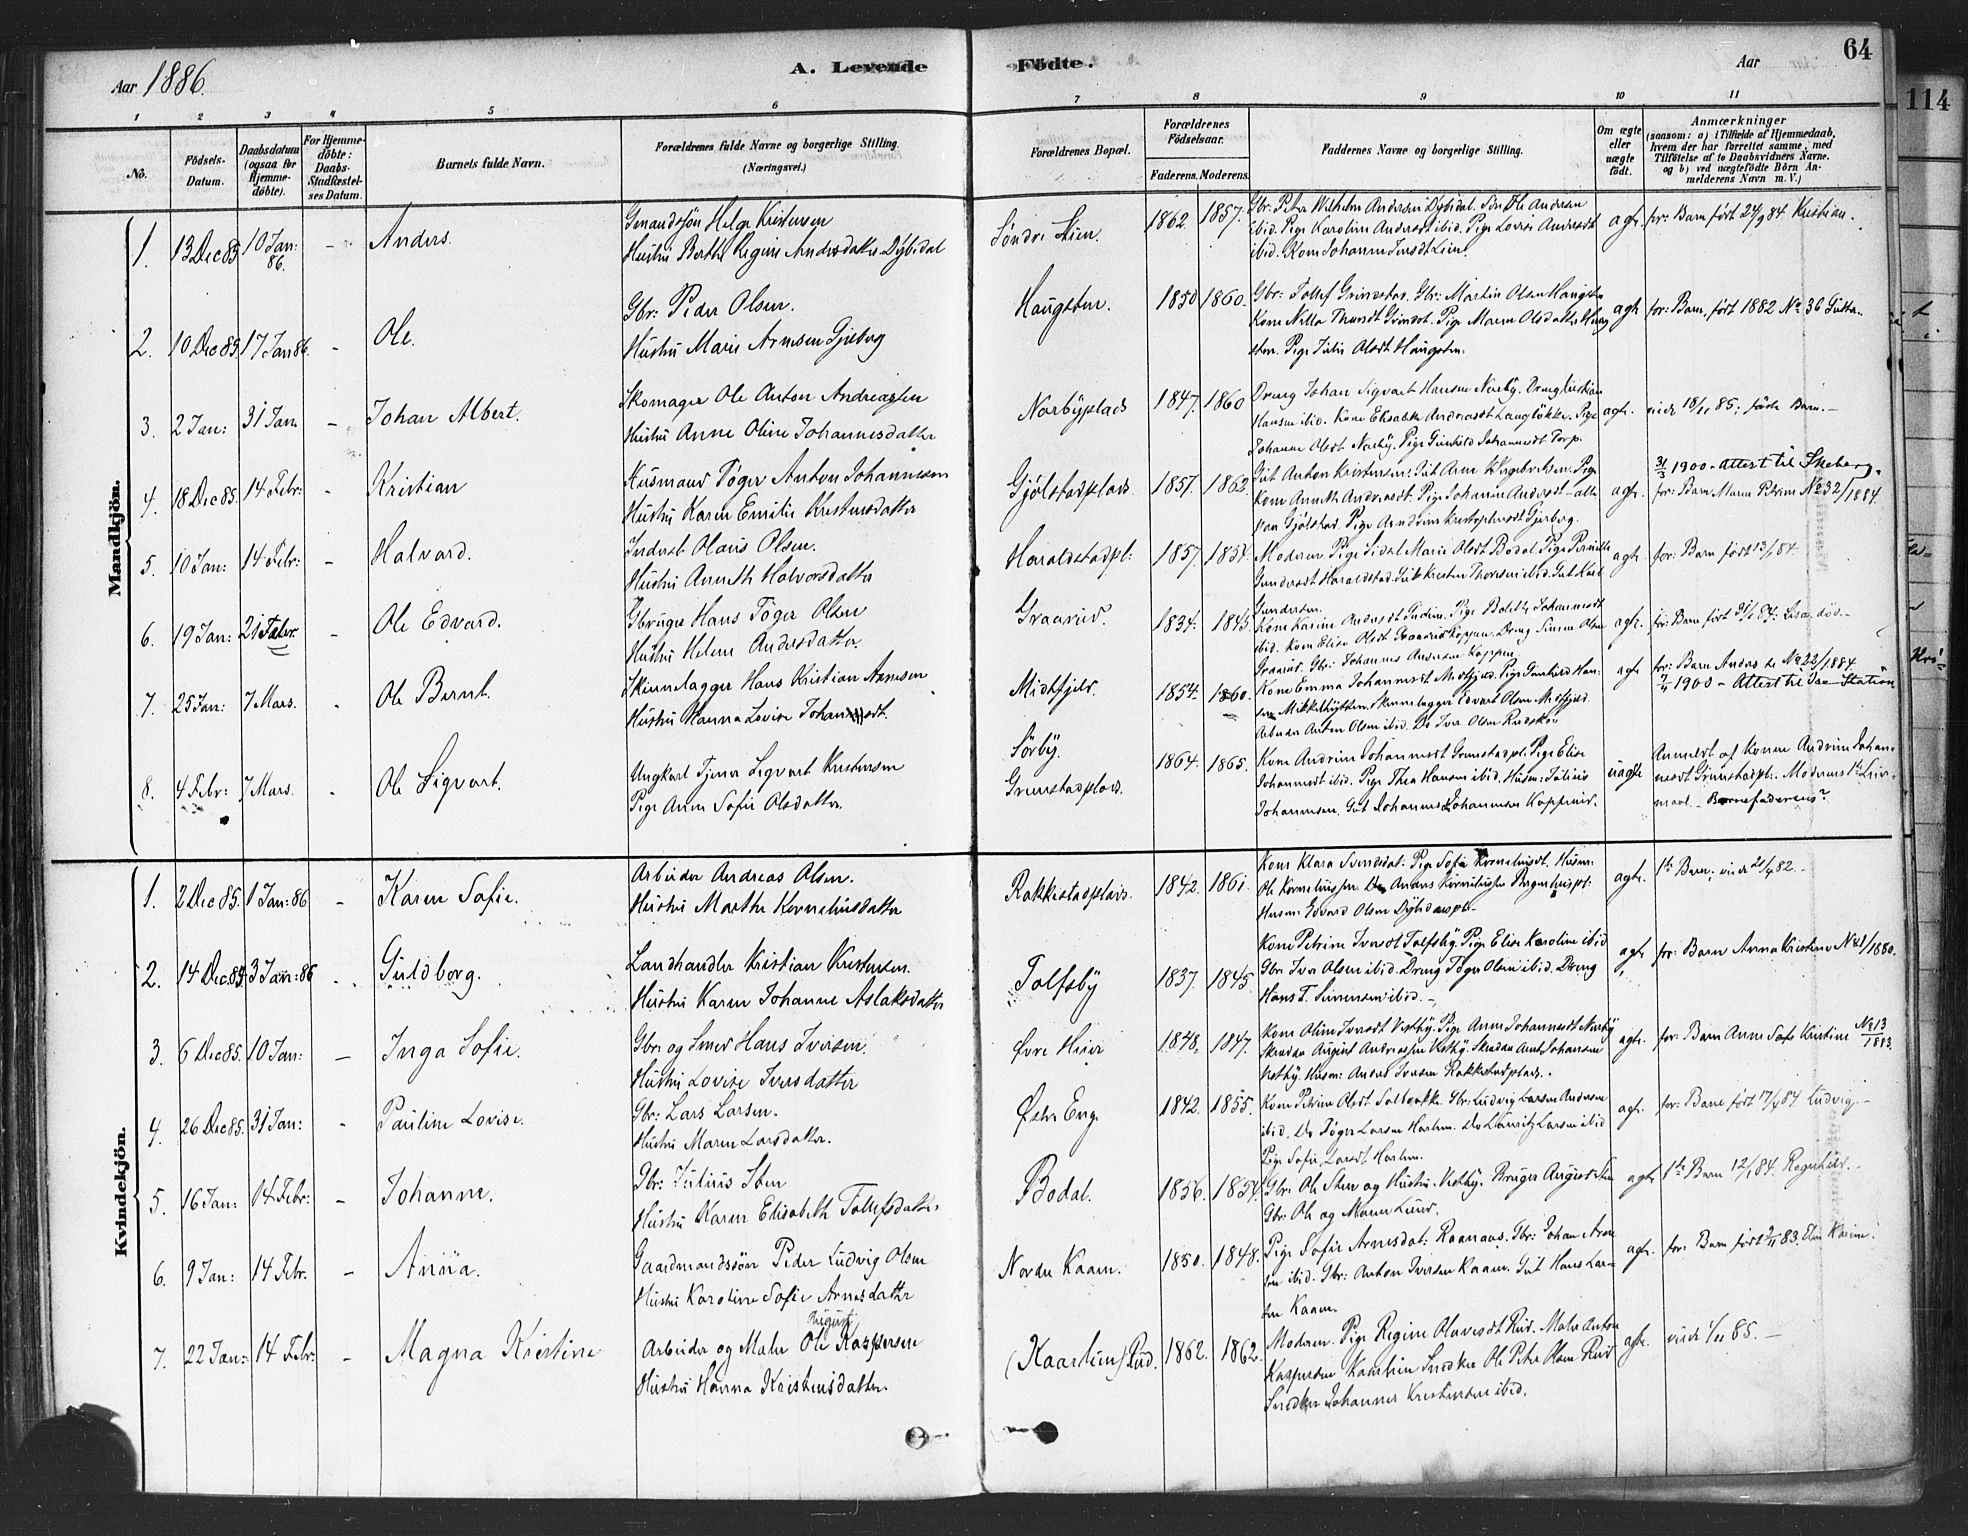 Aar 1886.
A. Levende
Födte.
Aar
64
114
1 2 3 4 5 6 7 8 9 10 11
No.
Födsels-Datum.
Daabsdatum (ogsaa for Hjemme-döbte).
For Hjemme-döbte: Daabs-Stadfæstel-ses Datum.
Barnets fulde Navn.
Forældrenes fulde Navne og borgerlige Stilling. (Næringsvei.)
Forældrenes Bopæl.
Forældrenes Födselsaar.
Faderens. Moderens.
Faddernes Navne og borgerlige Stilling.
Om ægte eller uægte födt.
Anmærkninger
(saasom: a) i Tilfælde af Hjemmedaab, hvem der har forrettet samme, med Tilföielse af to Daabsvidners Navne. og b) ved uægtefödte Börn An-melderens Navn m. V.)
Mandkjön.
1. 13 Dec 85 10 Jan: 86. - Anders.
Husmandssøn Helge Kristensen
Hustru Berthe Regine Andersdatter Dybedal
Søndre Lien. 1862. 1857.
Gbr: Peter Wilhelm Andersen Dybedal. Søn Ole Andersen
ibid. Pige Karoline Andersdt ibid. Pige Lovise Andersdt
ibid. Kone Johanne Iversdt Lien.
ægt. for: Barn født 24/9 84 Kristian.
2. 10 Dec 85. 17 Jan 86. - Ole.
Gbr: Peder Olsen.
Hustru Marie Arnesen Gjeberg
Haugsten. 1850 1860.
Gbr: Tollef Grimstad. Gbr: Martin Olsen Haugsten
Kone Nilla Grimst. Pige Maren Olsdatter Haug
sten. Pige Julie Olsdt Haugsten.
ægt for: Barn, født 1882 No 36 Gutter.
3. 2 Jan: 31 Jan - Johan Albert.
Skomager Ole Anton Andreassen
Hustru Anne Oline Johannesdatter
Norbyplads 1847. 1860
Dreng Johan Sigvart Hansen Norby. Dreng Kristian
Hansen ibid. Kone Elisabeth Andreasdt Langløkke. Pige
Johanne Olsdt Norby. Pige Gunhild Johannesdt Torp.
ægt. viede 18/11 85; første Barn.-
4. 18 Dec 85. 14 Febr: - Kristian
Husmand Töger Anton Johannesen
Hustru Karen Emilie Kristensdatter
Gjølstadplads. 1857. 1862
Gut Anton Kristensen. Gut Arne Pige
Kone Anneth Andreasdt. Pige Johanne Andersdt - alle
paa Gjølstad. Pige Andrine Kristophersdt Gjeberg.
ægt. 31/3 1900 - Attest til Skeberg.
for: Barn Maren Petrine No 32/1884.
5. 10 Jan: 14 Febr: - Halvard.
Inderst Olaus Olsen.
Hustru Anneth Halvorsdatter
Haraldstadpl: 1857. 1854.
Moderen. Pige Sidsel Marie Olsdt Bodal. Pige Pernille
Gundersdt Haraldstad. Gut Kristen Thoresen ibid. Gut Karl
Gundersen.
ægt. for: Barn født 13/1 84.
6. 19 Jan: 21 Febr. - Ole Edvard.
Gbruger Hans Töger Olsen
Hustru Helene Andersdatter.
Graarud. 1834. 1845.
Kone Karine Andersdt Pige Bolette Johannesdt
ibid. Kone Elise Olsdt Graarud Koppen. Dreng Simen Olsen
Graarud. Gbr: Johannes Andersen Koppen.
ægt. for: Barn født 31/1 84. Lisa. død.-
7. 25 Jan: 7 Mars. - Ole Bernt.
Skinnelægger Hans Kristian Arnesen
Hustru Hanna Lovise Johannesdt.
Midtfjeld. 1854. 1860.
Kone Emma Johannesdt Midtfjeld. Pige Gunhild Han-
sen Mikkelhytten. Skinnelægger Edvart Olsen Midtfjeld.
Arbeider Anton Olsen ibid. Do Iver Olsen Rudskov
ægt for: Barn Andrea se No 22/1884.
7/11 1900 - Attest til Ise Station.
8. 4 Febr: 7 Mars. - Ole Sigvart.
Ungkarl Tjener Sigvart Kristensen
Pige Anne Sofie Olsdatter.
Sørby.
Grimstadplads. 1864. 1865.
Kone Andrine Johannesdt Grimstadpl: Pige Elise
Johannesdt ibid. Pige Thea Hansen ibid. Husm: Julius
Johannesen. Gut Johannes Johannesen Kopperud.
uægte Anmeldt af Konen Andrine Johan-
nesdt Grimstadpl. Moderens 1ste Leier-
maal - Barnefaderens?
Kvindekjön.
1. 2 Dec 85. 1 Jan: 86 - Karen Sofie.
Arbeider Andreas Olsen.
Hustru Marthe Korneliusdatter
Rakkestadplads. 1842. 1861.
Kone Klara Svendsdat: Pige Sofie Korneliusdt. Husm:
Ole Korneliussen. Do Anders Korneliussen
Husm: Edvard Olsen Dybedalspl-
ægt. 1te Barn; viede 21/4 82.-
2. 14 Dec. 85. 3 Jan: 86 - Guldborg.
Landhandler Kristian Kristensen.
Hustru Karen Johanne Aslaksdatter
Tolfsby 1837. 1845
Kone Petrine Iversdt Tolfsby. Pige Elise Karoline ibid
Gbr: Iver Olsen ibid. Dreng Töger Olsen ibid. Dreng
Hans T. Simensen ibid.-
ægt. for: Barn Anna Kristine No 41/1880.
3. 6 Dec 85. 10 Jan: - Inga Sofie.
Gbr: og Smed Hans Iversen.
Hustru Lovise Iversdatter
Øvre Heier 1848. 1847.
Kone Oline Iversdt Vestby. Pige Anne Johannesdt Norby
Skredder August Andreassen Vestby. Skredder Johansen
Vestby. Husm: Anders Iversen Rakkestadplads..
ægt. for: Barn Anne Sofie Kristine No 13/1883.
4. 26 Dec 85. 31 Jan: - Pauline Lovise.
Gbr: Lars Larsen.
Hustru Maren Larsdatter.
Østre Eng. 1842. 1855.
Kone Petrine Olsdt Solbrekke. Gbr: Ludvig Larsen Andersen
ibid. Do Töger Larsen Harlem. Do Lauritz Larsen ibid
Pige Sofie Larsdt Harlem.
ægt. for: Barn født 17/4 84 Ludvig.-
5. 16 Jan: 14 Febr: - Johanne.
Gbr: Julius Sten
Hustru Karen Elisabeth Tollefsdatter
Bodal. 1856. 1854.
Gbr: Ole Sten og Hustru Vestby. Bruger August Sten
Gbr: Ole og Maren Lund.
ægt. 1te Barn 12/1 84. Ragnhild.-
6. 9 Jan: 14 Febr. - Anna.
Gaardmandssøn Peder Ludvig Olsen
Hustru Karoline Sofie Arnesdatter
Nordre Kaam. 1850. 1848.
Pige Sofie Arnesdat: Raanaas. Gbr: Johan Arne-
sen ibid. Gbr: Anton Iversen Kaam. Gut Hans Lar-
sen Kaam.
ægt. for: Barn født 2/11 83. Elen Karine.
7. 22 Jan: 14 Febr: - Magna Kristine
August
Arbeider og Maler Ole Kaspersen
Hustru Hanna Kristensdatter.
(Kaarlien) Rud. 1862. 1862.
Moderen. Pige Regine Olavesdt Rud. Maler Anton
Kaspersen Kaarlien Snedker Ole Peter Olsen Rud
Snedker Johannes Kristensen ibid.
ægt. viede 1/11 85.-